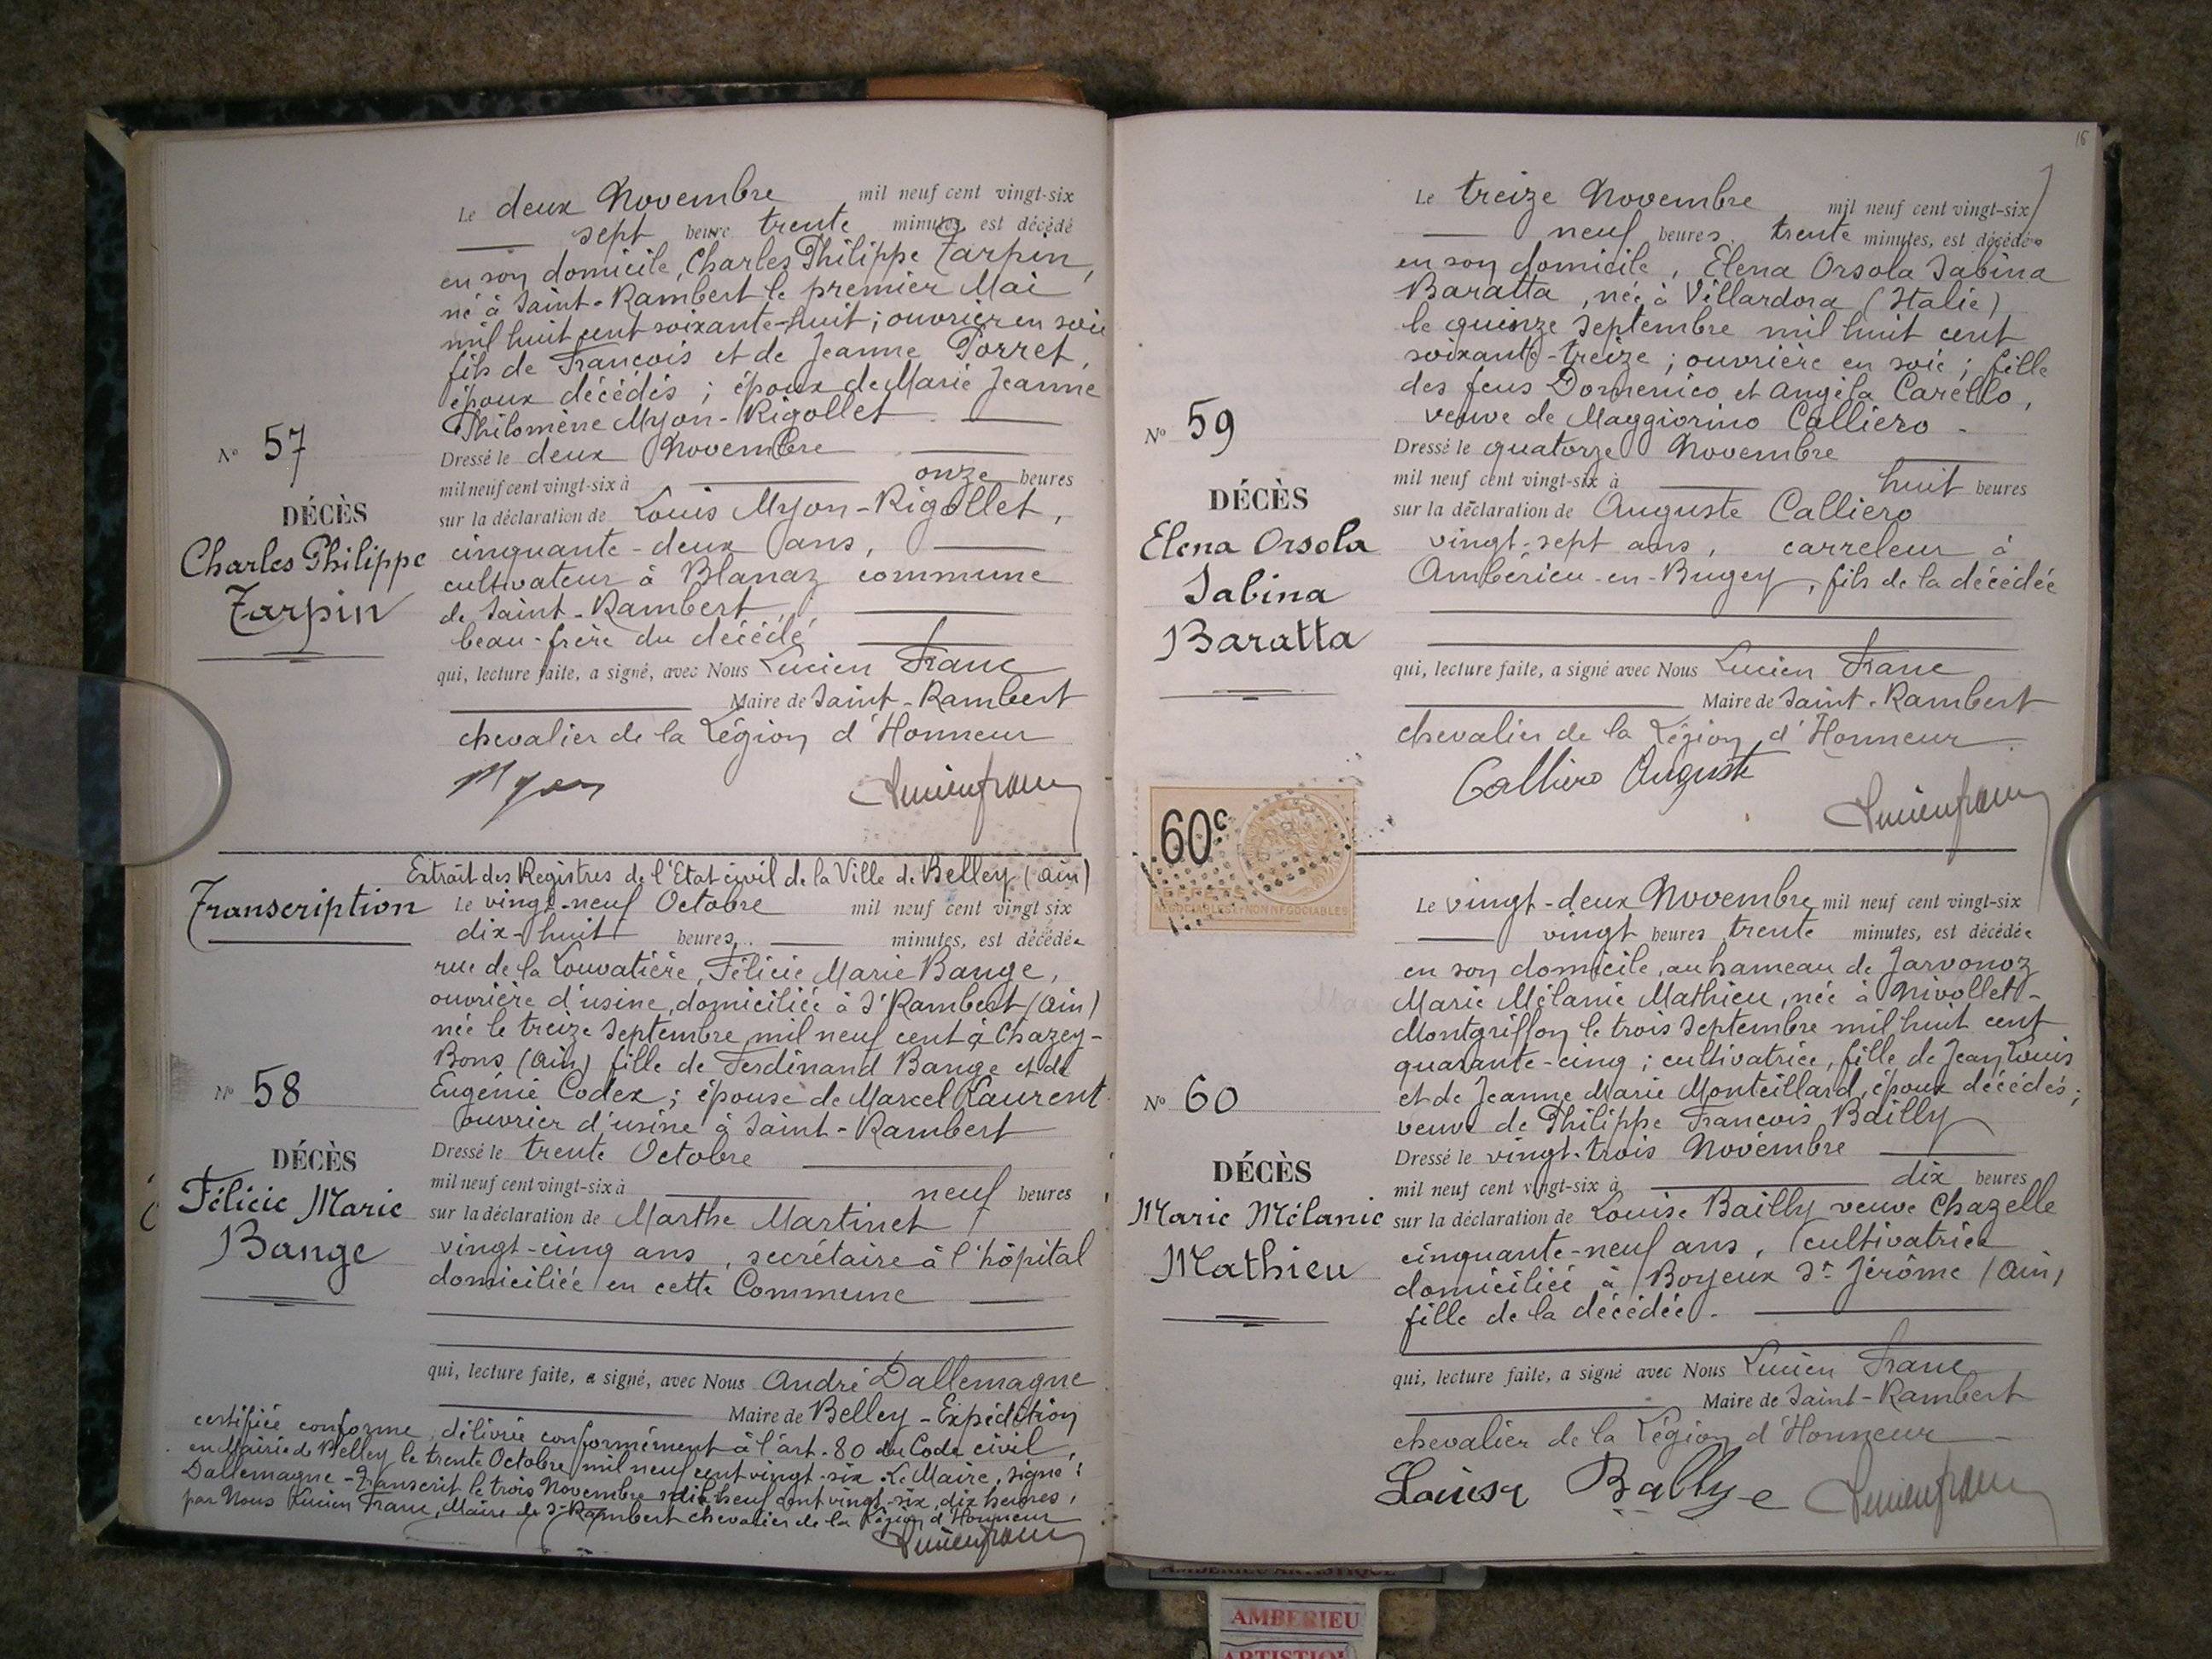 Le deux Novembre mil neuf cent vingt-six
sept heure trente minutes est décédé
en son domicile, Charles Philippe Tarpin,
né à Saint-Rambert le premier Mai
mil huit cent soixante-huit ; ouvrier en soie
fils de François et de Jeanne Porret,
époux décédés ; époux de Marie Jeanne
Philomène Myon-Rigollet
N° 57
Dressé le deux Novembre
mil neuf cent vingt-six à onze heures
DÉCÈS
sur la déclaration de Louis Myon-Rigollet,
Charles Philippe
Tarpin
cinquante-deux ans,
cultivateur à Blanaz commune
de Saint-Rambert,
beau-frère du décédé
qui, lecture faite, a signé, avec Nous Lucien Franc
Maire de Saint-Rambert
chevalier de la Légion d'Honneur
Myon Lucien franc
Transcription
Extrait des Registres de l'Etat civil de la Ville de Belley (Ain)
Le vingt-neuf Octobre mil neuf cent vingt six
dix-huit heures, minutes, est décédée
rue de la Louvatière, Félicie Marie Bange,
ouvrière d'usine, domiciliée à St Rambert (Ain)
née le treize Septembre mil neuf cent à Chazey-
Bons (Ain) fille de Ferdinand Bange et de
Eugénie Codex ; épouse de Marcel Laurent
ouvrier d'usine à Saint-Rambert
N° 58
DÉCÈS
Félicie Marie
Bange
Dressé le trente Octobre
mil neuf cent vingt-six à neuf heures
sur la déclaration de Marthe Martinet
vingt-cinq ans, secrétaire à l'hôpital
domiciliée en cette Commune
qui, lecture faite, a signé, avec Nous André Dallemagne
Maire de Belley - Expédition
certifiée conforme, délivrée conformément à l'art. 80 du Code civil,
en Mairie de Belley le trente Octobre mil neuf cent vingt-six. Le Maire, signé :
Dallemagne - Transcrit le trois Novembre mil neuf cent vingt-six, dix heures,
par Nous Lucien Franc, Maire de St Rambert chevalier de la Légion d'Honneur
Lucien franc
16
Le treize Novembre mil neuf cent vingt-six
neuf heures, trente minutes, est décédée
en son domicile, Elena Orsola Sabina
Baratta, née à Villardora (Italie)
le quinze Septembre mil huit cent
soixante-treize ; ouvrière en soie ; fille
des feus Domenico et Angela Carello,
veuve de Maggiorino Calliero -
N° 59
DÉCÈS
Elena Orsola
Sabina
Baratta
Dressé le quatorze Novembre
mil neuf cent vingt-six à huit heures
sur la déclaration de Auguste Calliero
vingt-sept ans, carreleur à
Ambérieu-en-Bugey, fils de la décédée
qui, lecture faite, a signé avec Nous Lucien Franc
Maire de Saint-Rambert
chevalier de la Légion d'Honneur
Calliero Auguste Lucien franc
60c
NÉGOCIABLES ET NON NÉGOCIABLES
Le vingt-deux Novembre mil neuf cent vingt-six
vingt heures trente minutes, est décédée
en son domicile, au hameau de Javornoz
Marie Mélanie Mathieu, née à Nivollet-
Montgriffon le trois Septembre mil huit cent
quarante-cinq ; cultivatrice, fille de Jean Louis
et de Jeanne Marie Monteillard, époux décédés ;
veuve de Philippe François Bailly
N° 60
DÉCÈS
Marie Mélanie
Mathieu
Dressé le vingt-trois Novembre
mil neuf cent vingt-six à dix heures
sur la déclaration de Louise Bailly veuve Chazelle
cinquante-neuf ans, cultivatrice
domiciliée à Boyeux St Jérôme (Ain)
fille de la décédée -
qui, lecture faite, a signé avec Nous Lucien Franc
Maire de Saint-Rambert
chevalier de la Légion d'Honneur
Louise Bally e Lucien franc
AMBERIEU ARTISTIQUE
AMBERIEU
ARTISTIQU